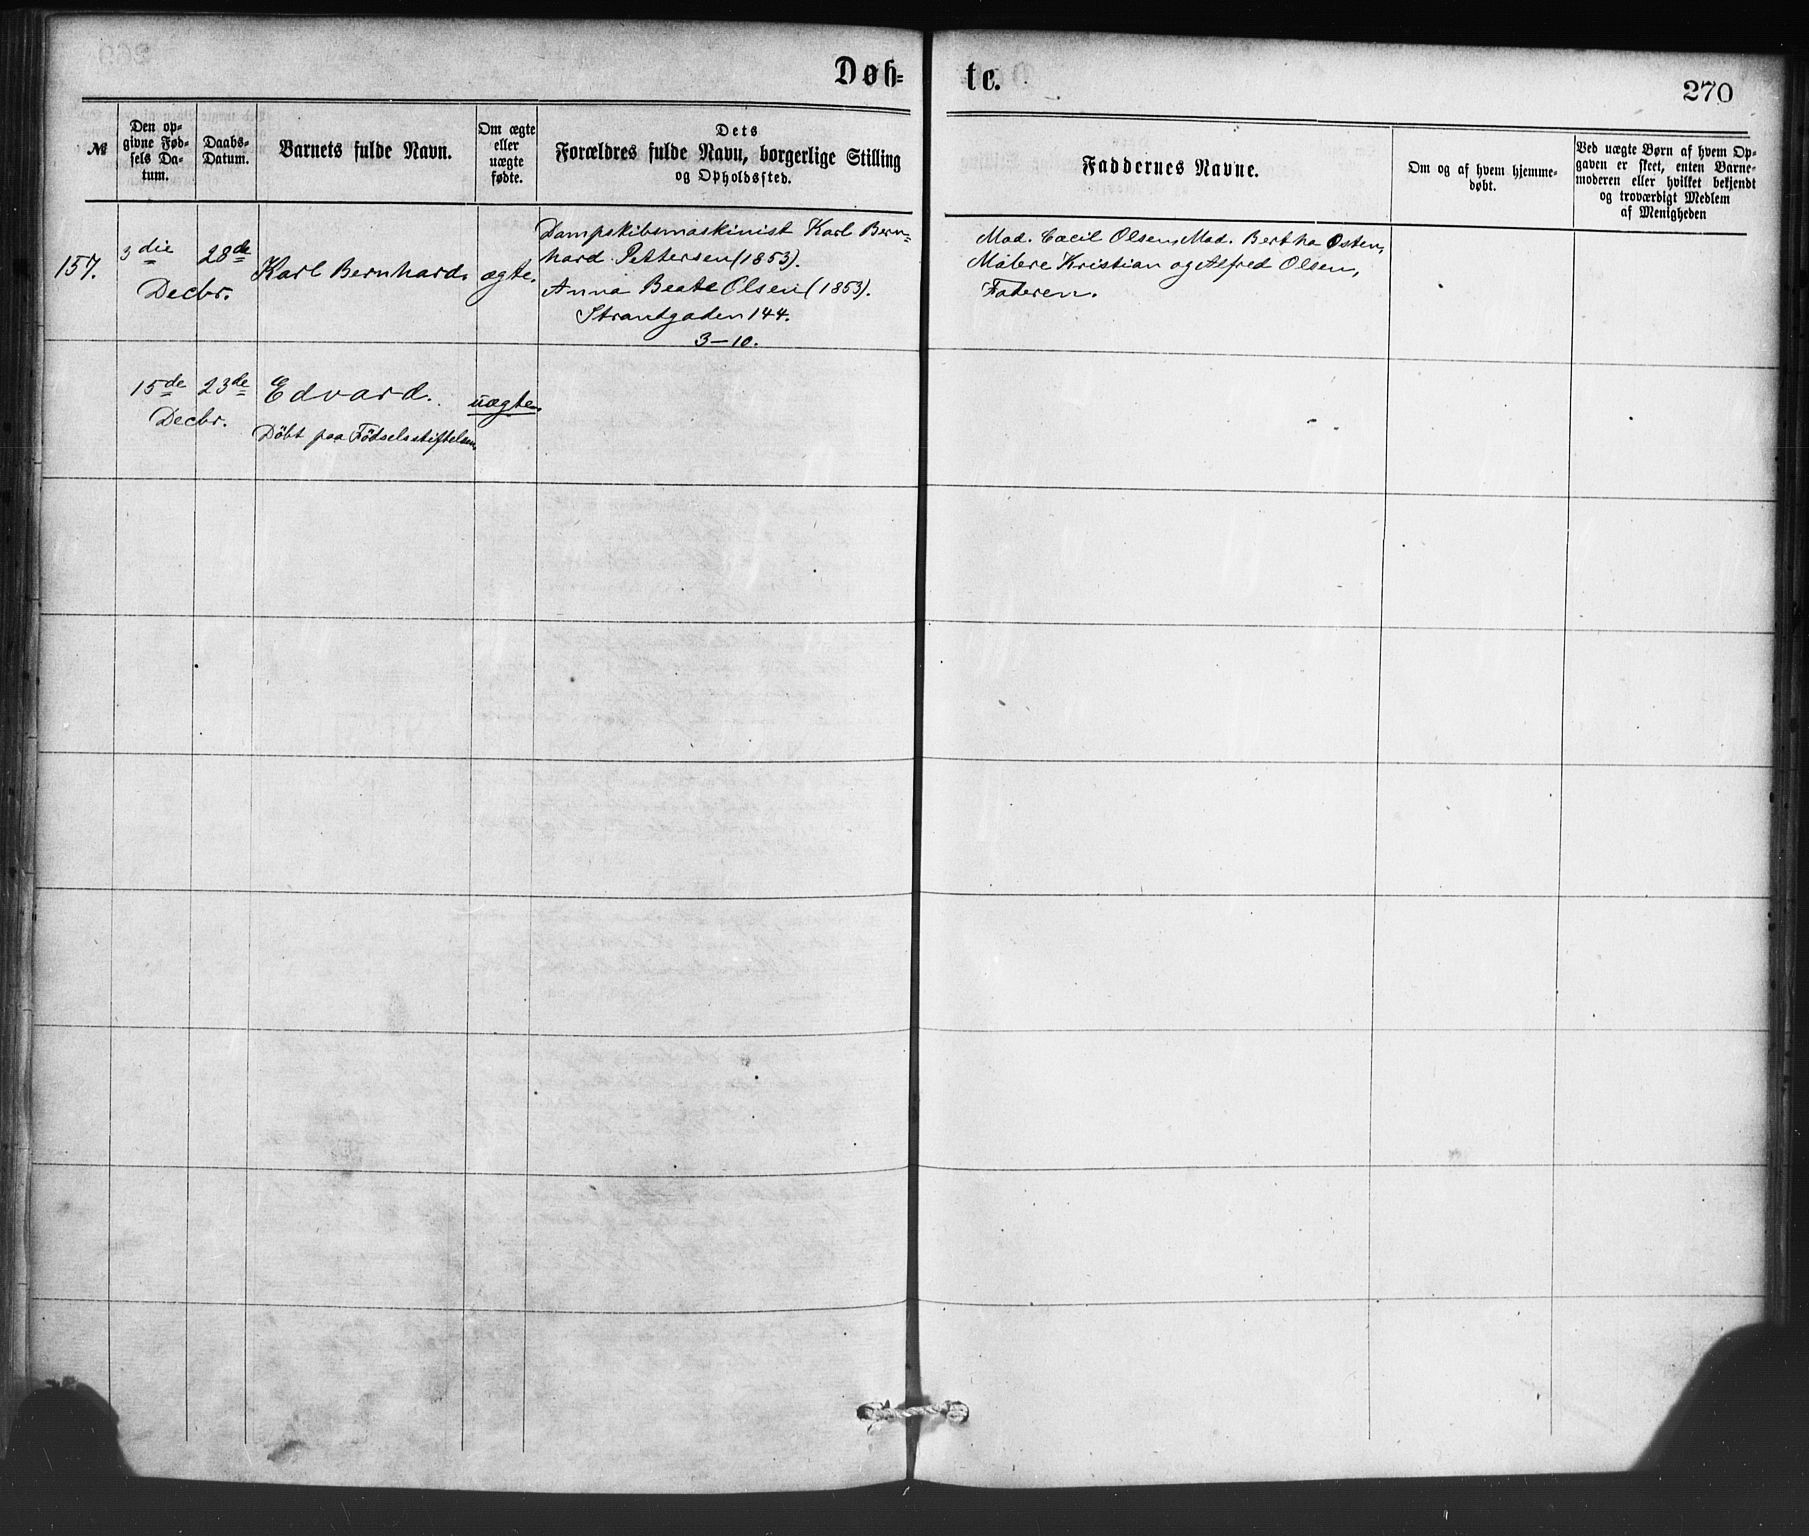 Døb=
te.
270
№
Den op-
givne Fød-
sels Da-
tum.
Daabs-
Datum.
Barnets fulde Navn.
Om ægte
eller
uægte
fødte.
Dets
Forældres fulde Navn, borgerlige Stilling
og Opholdssted.
Faddernes Navne.
Om og af hvem hjemme-
døbt.
Ved uægte Børn af hvem Op-
gaven er skeet, enten Barne-
moderen eller hvilket bekjendt
og troværdigt Medlem
af Menigheden
157.
3die
Decbr.
28de
Karl Bernhard.
ægte.
Dampskibsmaskinist Karl Bern=
hard Pettersen (1853).
Anna Beate Olsen (1853).
Strandgaden 144.
3-10.
Mad. Cæcil Olsen, Mad. Bertha Osten,
Målere Kristian og Alfred Olsen,
Faderen.
15de
Decbr.
23de
Edvard.
Døbt paa Fødselsstiftelsen.
uægte.